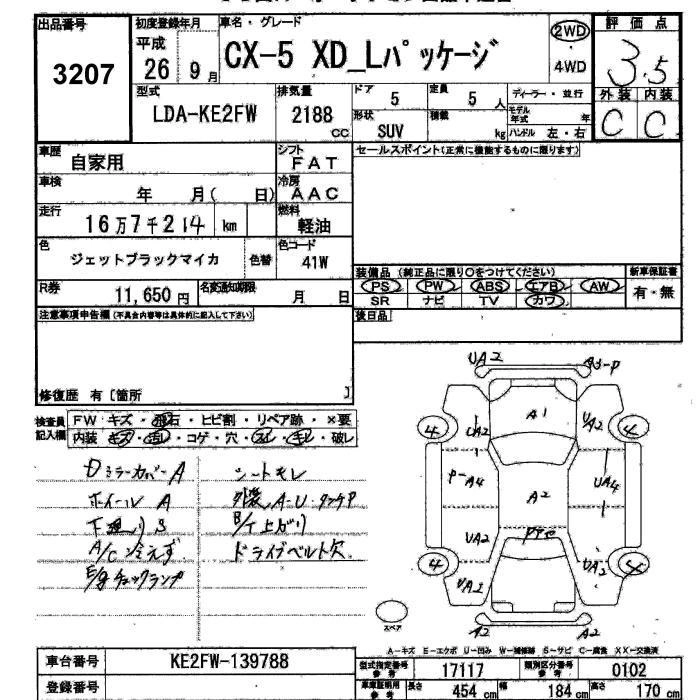 出品番号
3207
初度登録年月
平成
26 9 月
車名・グレード
CX-5 XD_Lパッケージ
2WD
・
4WD
評価点
3.5
外装 内装
C C
型式
LDA-KE2FW
排気量
2188
cc
ドア
5
定員
5 人
ディーラー・並行
形状
SUV
積載
kg
モデル年式 年
ハンドル 左・右
車歴
自家用
シフト
FAT
セールスポイント(正常に機能するものに限ります)
車検
年 月( 日)
冷房
AAC
走行
16万7千214 km
燃料
軽油
色
ジェットブラックマイカ
色替
色コード
41W
装備品 (純正品に限り〇をつけてください)
新車保証書
PS PW ABS エアB AW
有・無
SR ナビ TV カワ
R券
11,650 円
名変通知期限
月 日
注意事項申告欄(不具合内容等は具体的に記入して下さい)
後日品
修復歴 有[箇所 ]
検査員記入欄
FW キズ・飛石・ヒビ割・リペア跡・×要
内装 キズ・汚し・コゲ・穴・スレ・キレ・破レ
Dミラーカバー A
ホイール A
下廻り S
A/C冷えず
E/gチェックランプ
シートキレ
外装 A・U・タッチP
B/T上がり
ドライブベルト欠
UA2
A3-P
A1
UA2
UA2
4
4
P-A4
A2
UA4
UA2
PTセ
UA2
4
4
UA2
A2
A2
スペア
A-キズ E-エクボ U-凹み W-補修跡 S-サビ C-腐食 XX-交換済
車台番号
KE2FW-139788
登録番号
型式指定番号
参考
17117
類別区分番号
参考
0102
車庫証明用
参考
長さ
454 cm
幅
184 cm
高さ
170 cm